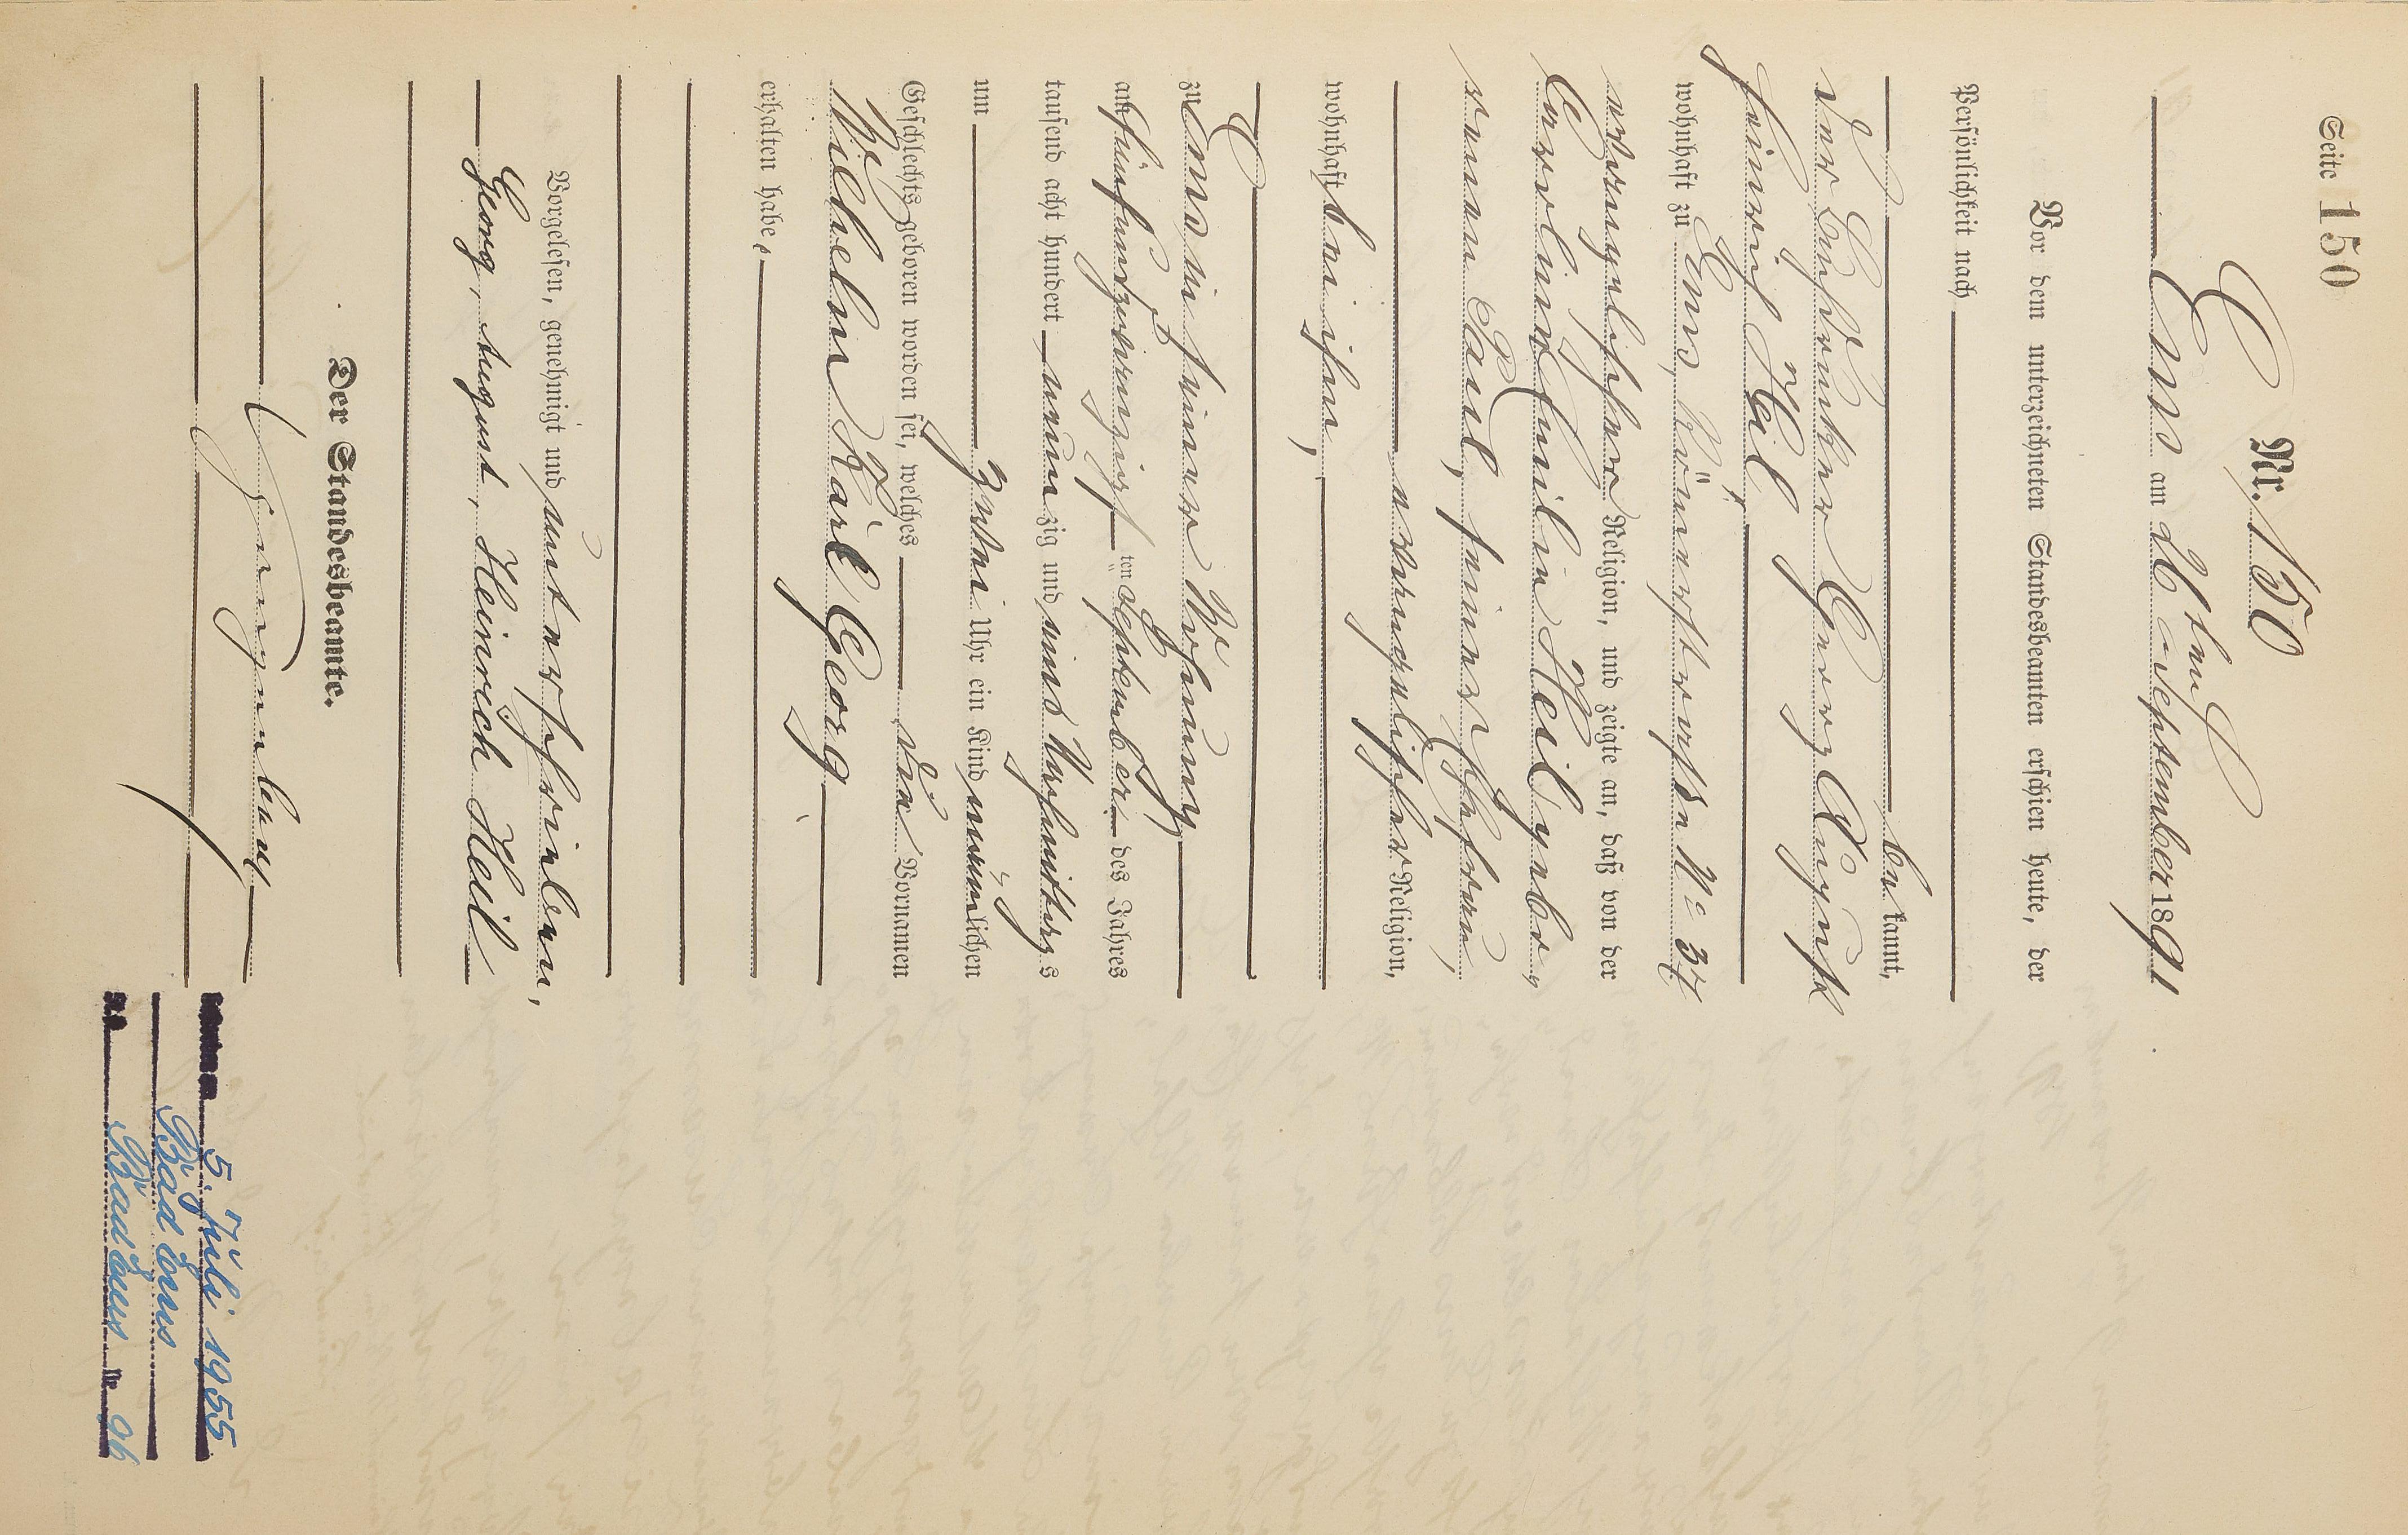 Seite 150
Nr. 150
Ems am 26ten September 1891
Vor dem unterzeichneten Standesbeamten erschien heute, der
Persönlichkeit nach
be kannt,
der Buchdrucker Georg August
Heinrich Heil,
wohnhaft zu Ems, Römerstraße No 37
evangelischer Religion, und zeigte an, daß von der
Caroline Emilie Heil gebo„
renen Paul, seiner Ehefrau,
evangelischer Religion,
wohnhaft bei ihm,
zu Ems in seiner Wohnung
am fünfundzwanzigsten September des Jahres
tausend acht hundert neunzig und eins Vormittags
um zwei Uhr ein Kind männlichen
Geschlechts geboren worden sei, welches die Vornamen
Wilhelm Karl Georg
erhalten habe.
Vorgelesen, genehmigt und unterschrieben,
Georg, August, Heinrich Heil
Der Standesbeamte.
5. Juli 1955
Bad Ems
Bad Ems Nr 96